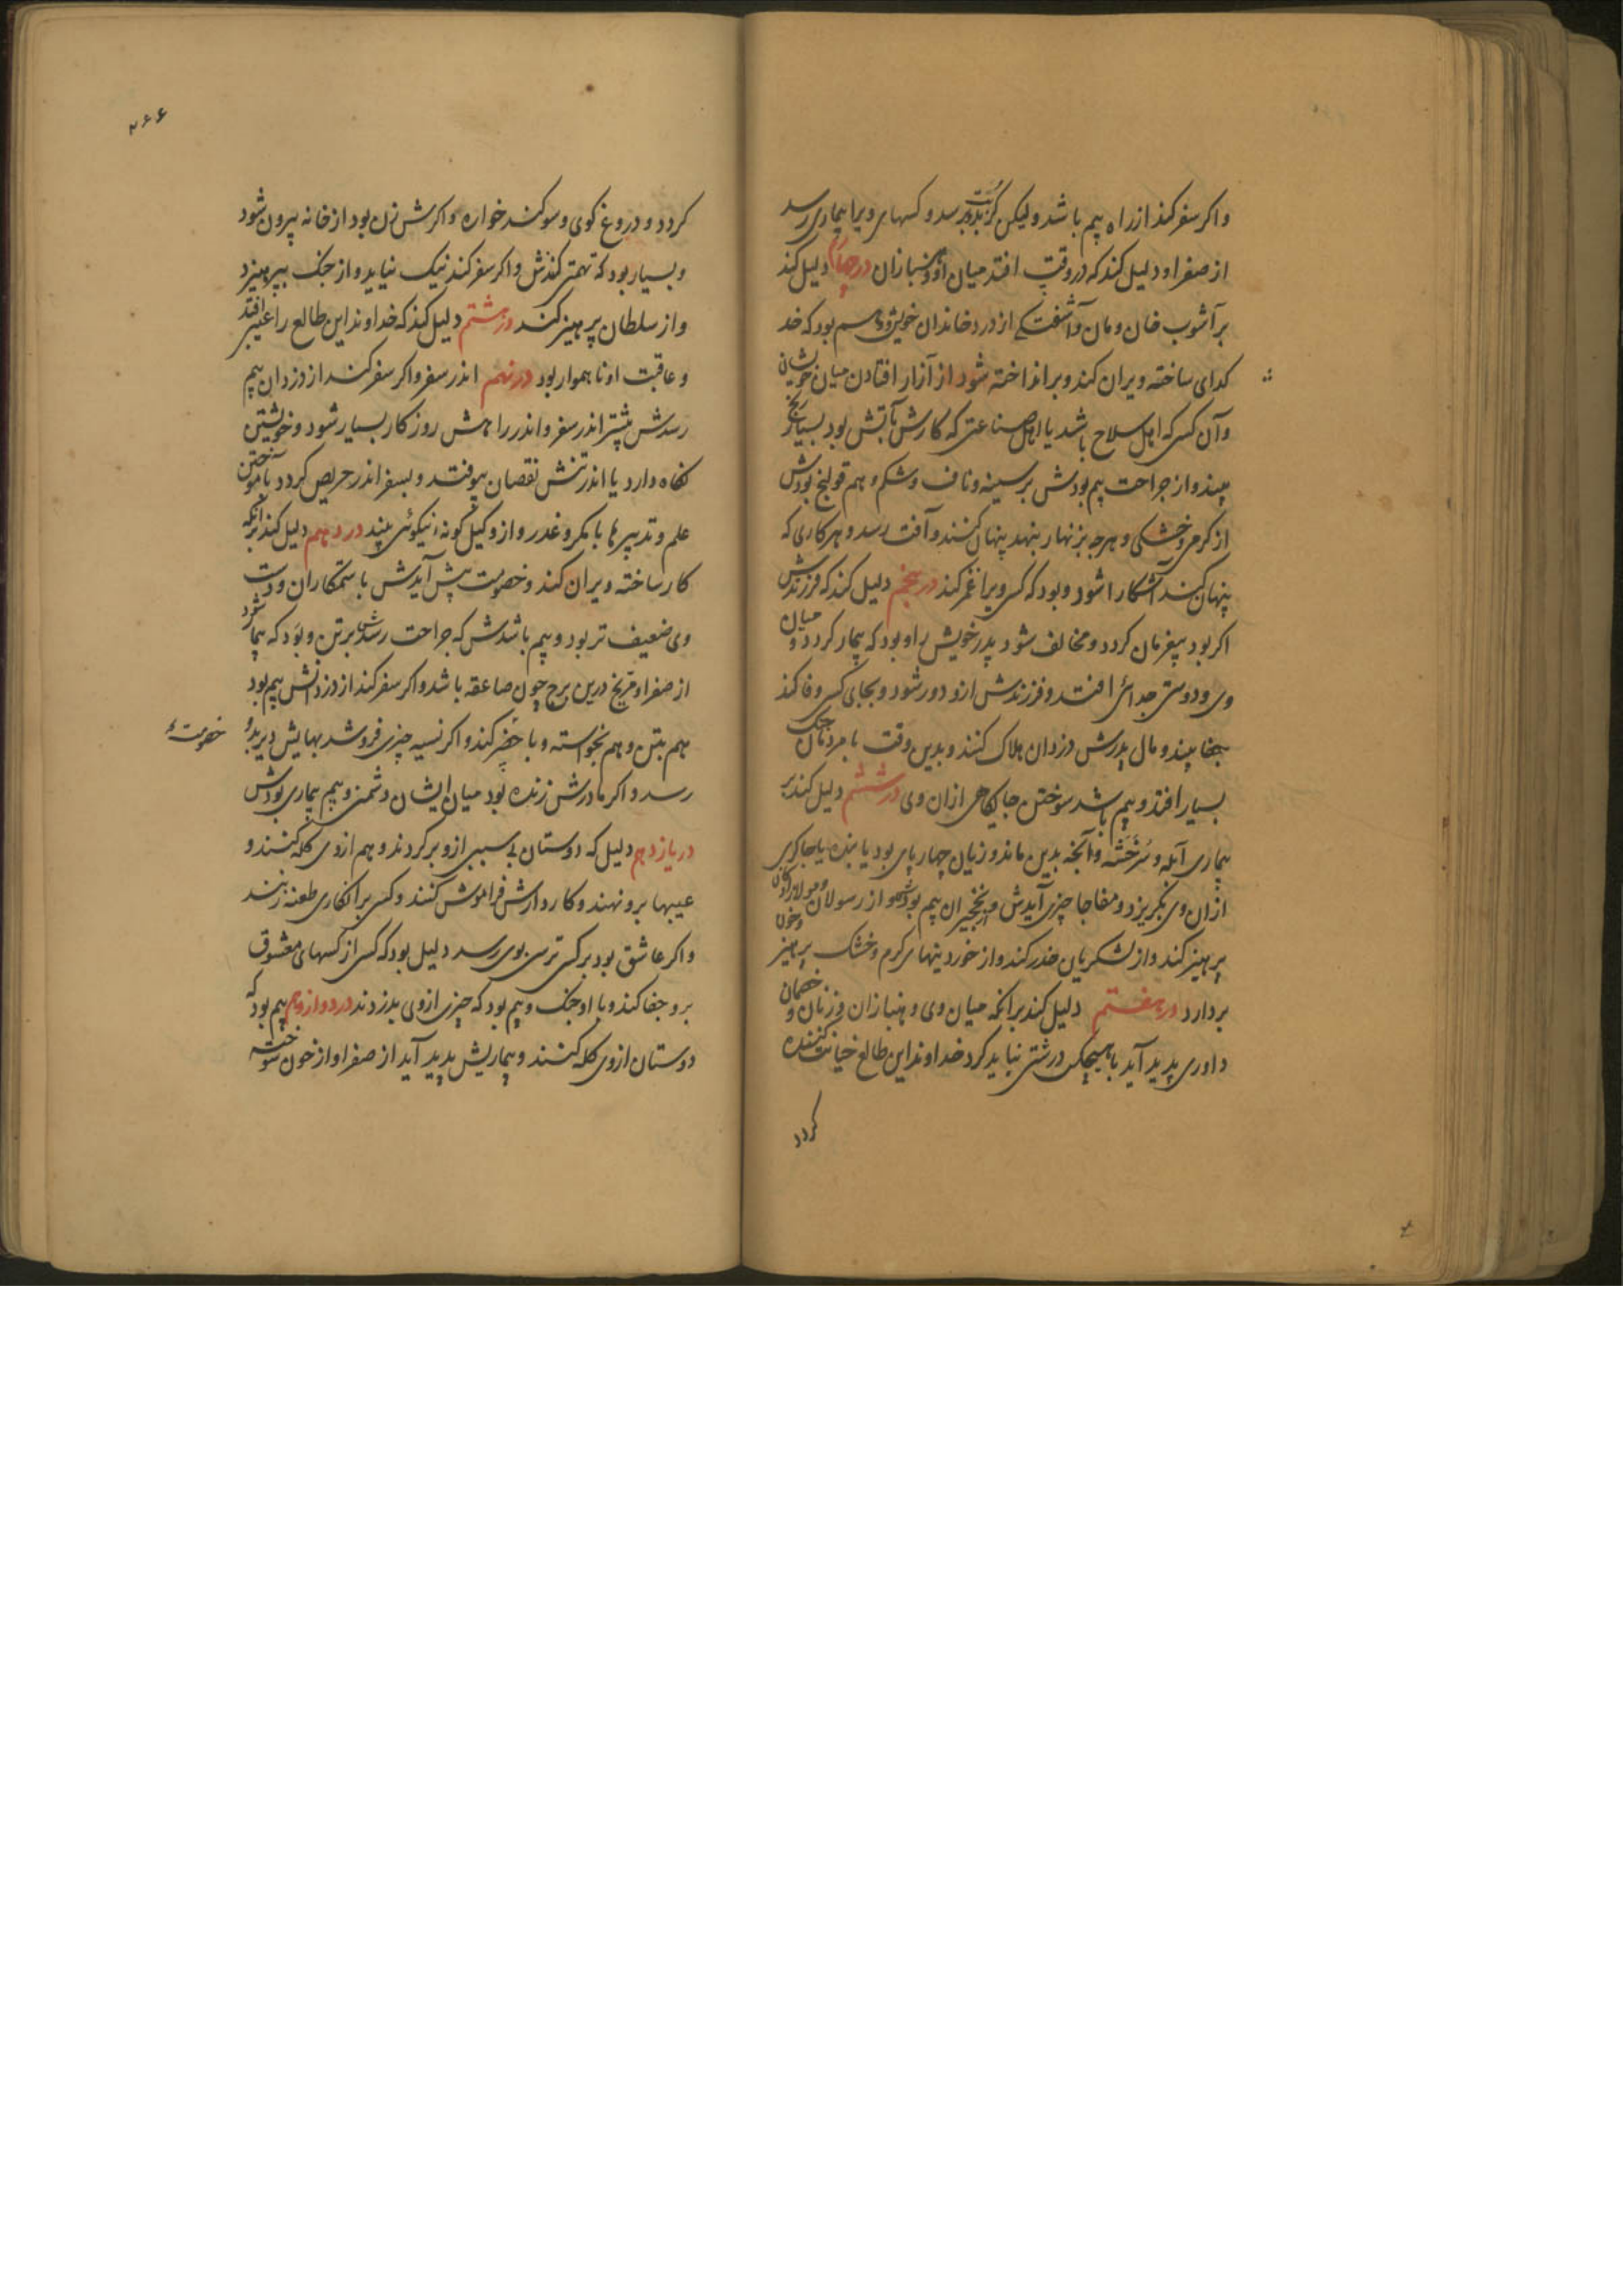 واکر سفر کند از راه بیم باشد ولیکن کزند برسد و کسهای ویرا بیماری رسد
از صفرا و دلیل کند که در وقت افتد میان او و انبازان در چهارم دلیل کند
بر آشوب خان و مان و آشفتکی از درد خاندان خویش و بیم بود که خد
کدای ساخته ویران کند و برانداخته شود از آزار افتادن میان خویشان
و آن کسی که اهل سلاح باشد یا اهل صناعتی که کارش بآتش بود بسیار رنج
بیند و از جراحت بیم بودش بر سینه و ناف و شکم و بیم قولنج بودش
از کرمی و خشکی و هرچه بزنهار بنهد پنهان کنند و آفت رسد و هر کاری که
پنهان کند آشکارا شود و بود که کسی ویرا غمز کند در پنجم دلیل کند که فرزندش
اکر بود بیفرمان کردد و مخالف شود پدر خویش را و بود که بیمار کردد و میان
وی و دوستی جدائی افتد و فرزندش ازو دور شود و بجای کسی وفا کند
جفا بیند و مال پدرش دزدان هلاک کنند و بدین وقت با مردمان جنک
بسیار افتد و بیم باشد سوختن جایکاهی از ان وی در ششم دلیل کند بر
بیماری آبله و سرخشه و آنچه بدین ماند و زیان چهارپای بود یا بنده یا چاکری
از ان وی بکریزد و مفاجا چیزی آیدش و از نخجیران بیم بودش و از رسولان و مولازادکان
پرهیز کند و از لشکریان حذر کند و از خوردنیهای کرم و خشک پرهیز و خون
بردارد در هفتم دلیل کند برانکه میان وی و انبازان و زنان و خصمان
داوری پدید آید با هیچکس درشتی نباید کرد خداوند این طالع خیانت کننده
کردد
۲۶۶
کردد و دروغ کوی و سوکند خواره و اکرش زن بود از خانه بیرون شود
و بسیار بود که تهمتی کنندش و اکر سفر کند نیک نیاید و از جنک بپرهیزد
و از سلطان پرهیز کند در هشتم دلیل کند که خداوند این طالع را عیبی افتد
و عاقبت او ناهموار بود در نهم اندر سفر و اکر سفر کند از دزدان بیم
رسدش بیشتر اندر سفر و اندر راهش روزکار بسیار شود و خویشتن
نکاه دارد یا اندر تنش نقصان بیوفتد و بسفر اندر حریص کردد بآموختن
علم و تدبیرها با مکر و غدر و از و کیل کونه نیکوئی بیند در دهم دلیل کند برانکه
کار ساخته ویران کند و خصومت پیش آیدش با ستمکاران و دست
وی ضعیف تر بود و بیم باشدش که جراحت رسدش بر تن و بود که بیمار شود
از صفرا و مریخ درین برج چون صاعقه باشد و اکر سفر کند از دزدانش بیم بود
هم بتن و هم بخواسته و با حذر کند و اکر نسیه چیزی فروشد بهایش دیر بدو
خصومت
رسد و اکر مادرش زنده بود میان ایشان دشمنی و بیم بیماری بودش
در یازدهم دلیل که دوستان بی سببی ازو برکردند و هم از وی کله کنند و
عیبها برو نهند و کار دارش فراموش کنند و کسی بر انکاری طعنه زند
و اکر عاشق بود بر کسی ترسی بوی رسد دلیل بود که کسی از کسهای معشوق
برو جفا کند و با او جنک و بیم بود که چیزی از وی بدزدند در دوازدهم بیم بود که
دوستان از وی کله کنند و بیماریش پدید آید از صفرا و از خون سوخته